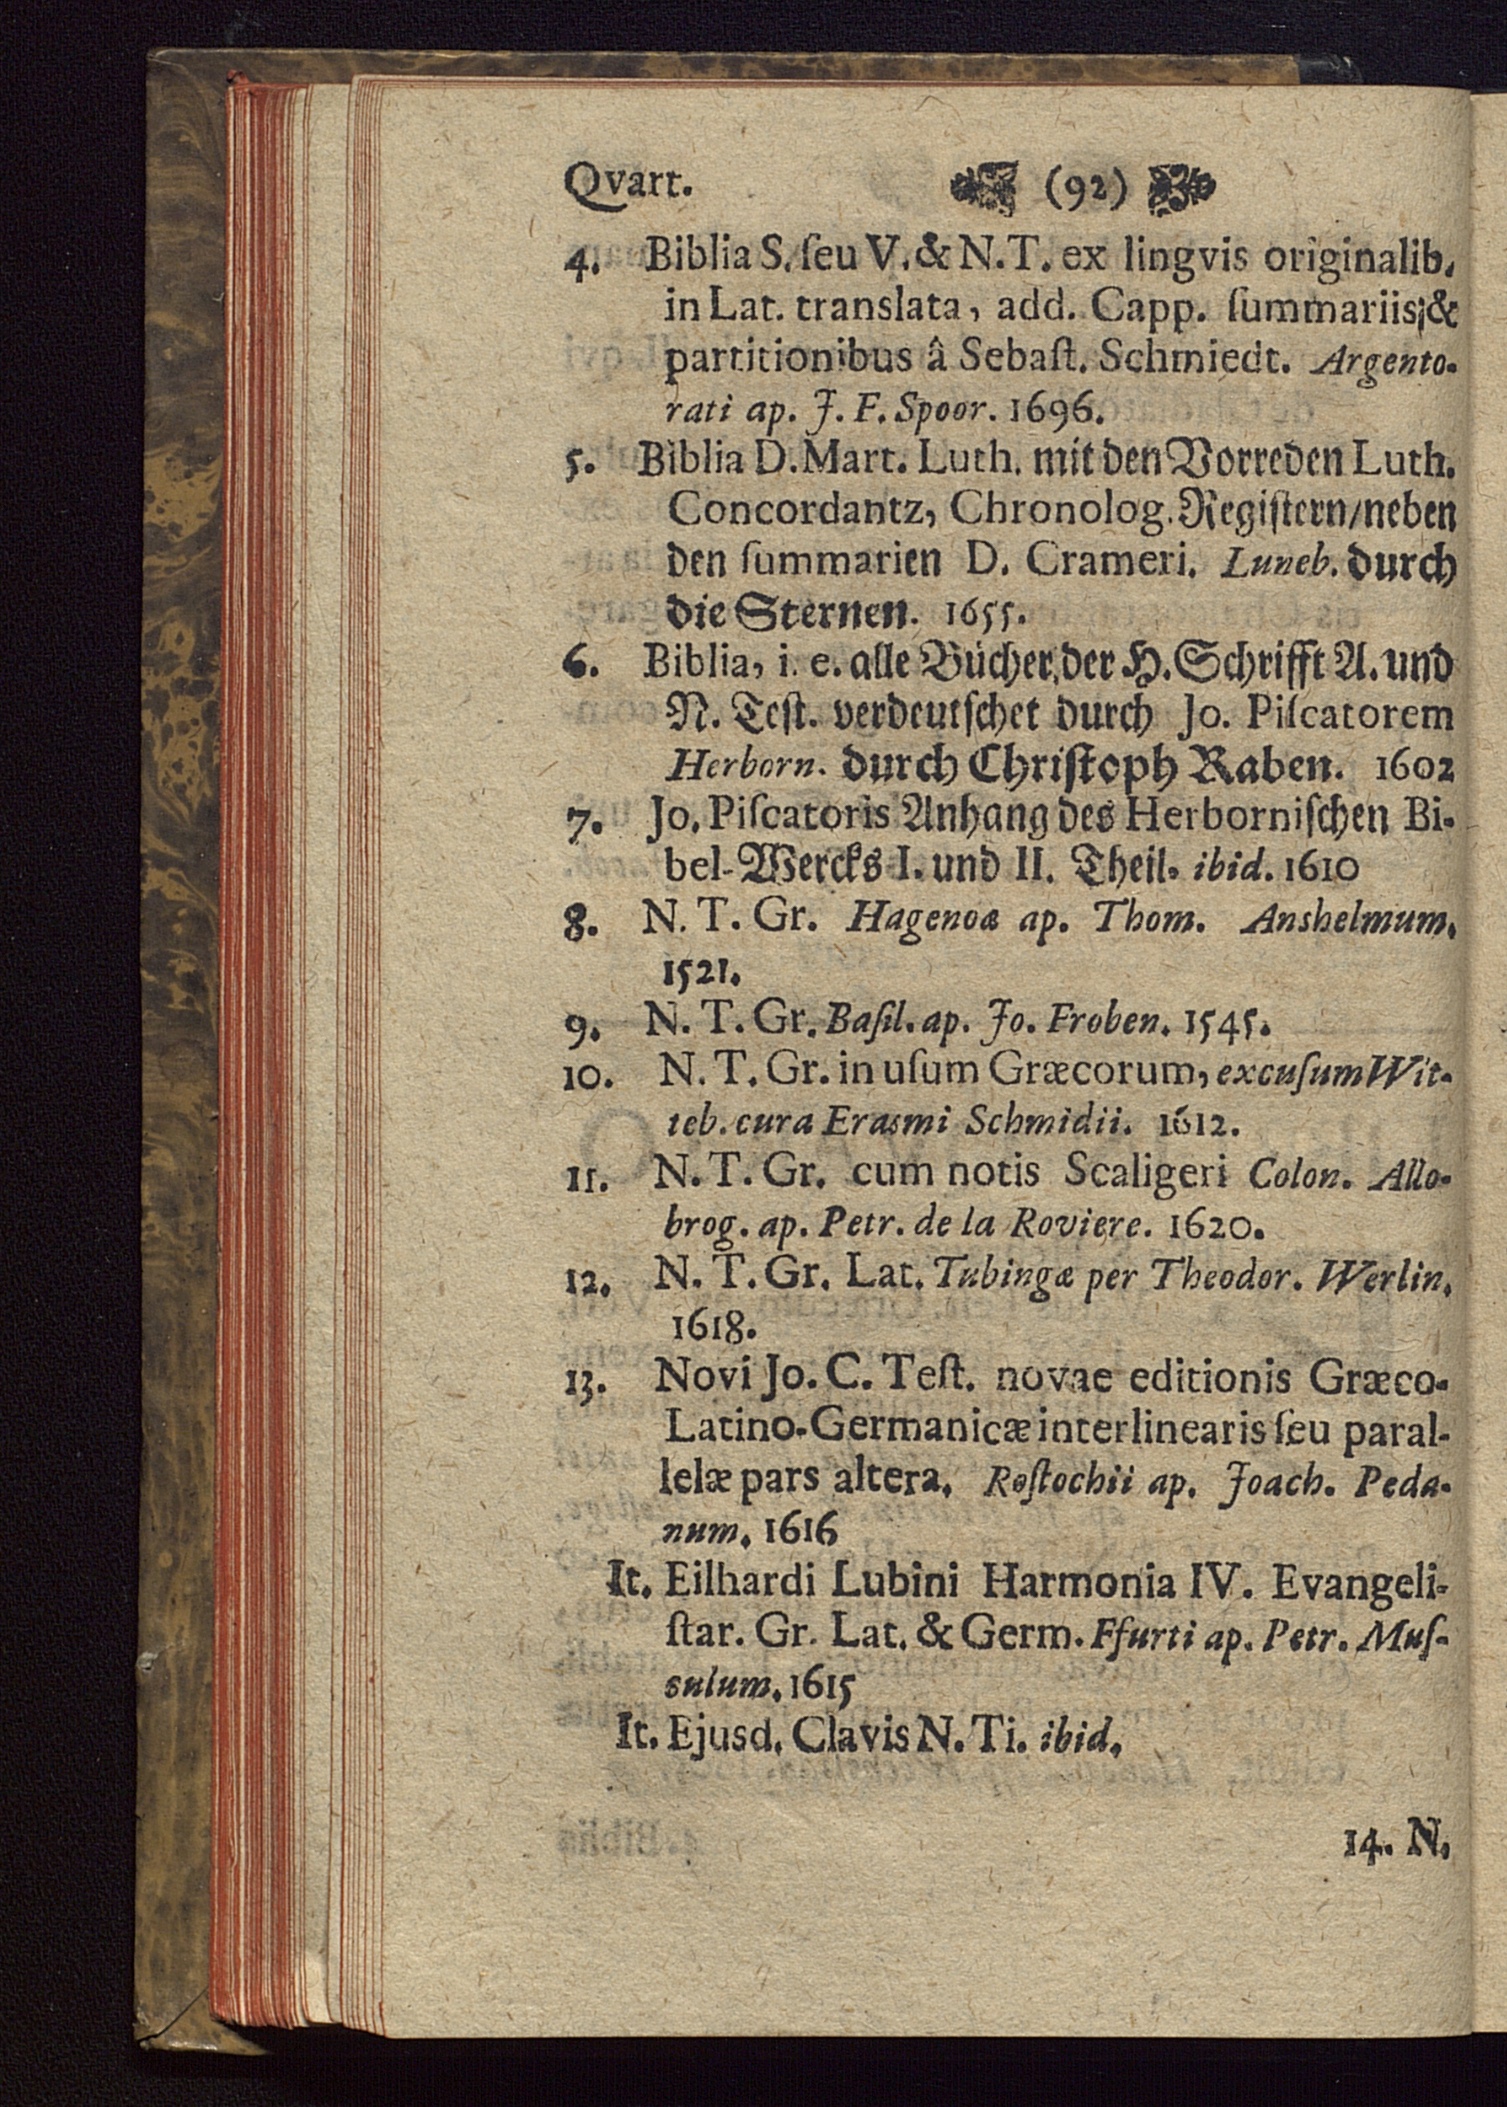 Qvart. (92)
4. Biblia S. ſeu V. & N. T. ex lingvis originalib.
in Lat. translata, add. Capp. ſummariis; &
partitionibus â Sebaſt. Schmiedt. Argento-
rati ap. J. F. Spoor. 1696.
5. Biblia D. Mart. Luth. mit den Vorreden Luth.
Concordantz, Chronolog. Regiſtern / neben
den ſummarien D. Crameri. Luneb. durch
die Sternen. 1655.
6. Biblia, i. e. alle Bücher der H. Schrifft A. und
N. Teſt. verdeutſchet durch Jo. Piſcatorem
Herborn. durch Chriſtoph Raben. 1602
7. Jo. Piſcatoris Anhang des Herborniſchen Bi-
bel-Wercks I. und II. Theil. ibid. 1610
8. N. T. Gr. Hagenoæ ap. Thom. Anshelmum.
1521.
9. N. T. Gr. Baſil. ap. Jo. Froben. 1545.
10. N. T. Gr. in uſum Græcorum, excuſum Wit-
teb. cura Erasmi Schmidii. 1612.
11. N. T. Gr. cum notis Scaligeri Colon. Allo-
brog. ap. Petr. de la Roviere. 1620.
12. N. T. Gr. Lat. Tubingæ per Theodor. Werlin.
1618.
13. Novi Jo. C. Teſt. novae editionis Græco-
Latino-Germanicæ interlinearis ſeu paral-
lelæ pars altera. Roſtochii ap. Joach. Peda-
num. 1616
It. Eilhardi Lubini Harmonia IV. Evangeli-
ſtar. Gr. Lat. & Germ. Ffurti ap. Petr. Muſ-
sulum. 1615
It. Ejusd. Clavis N. Ti. ibid.
14. N.